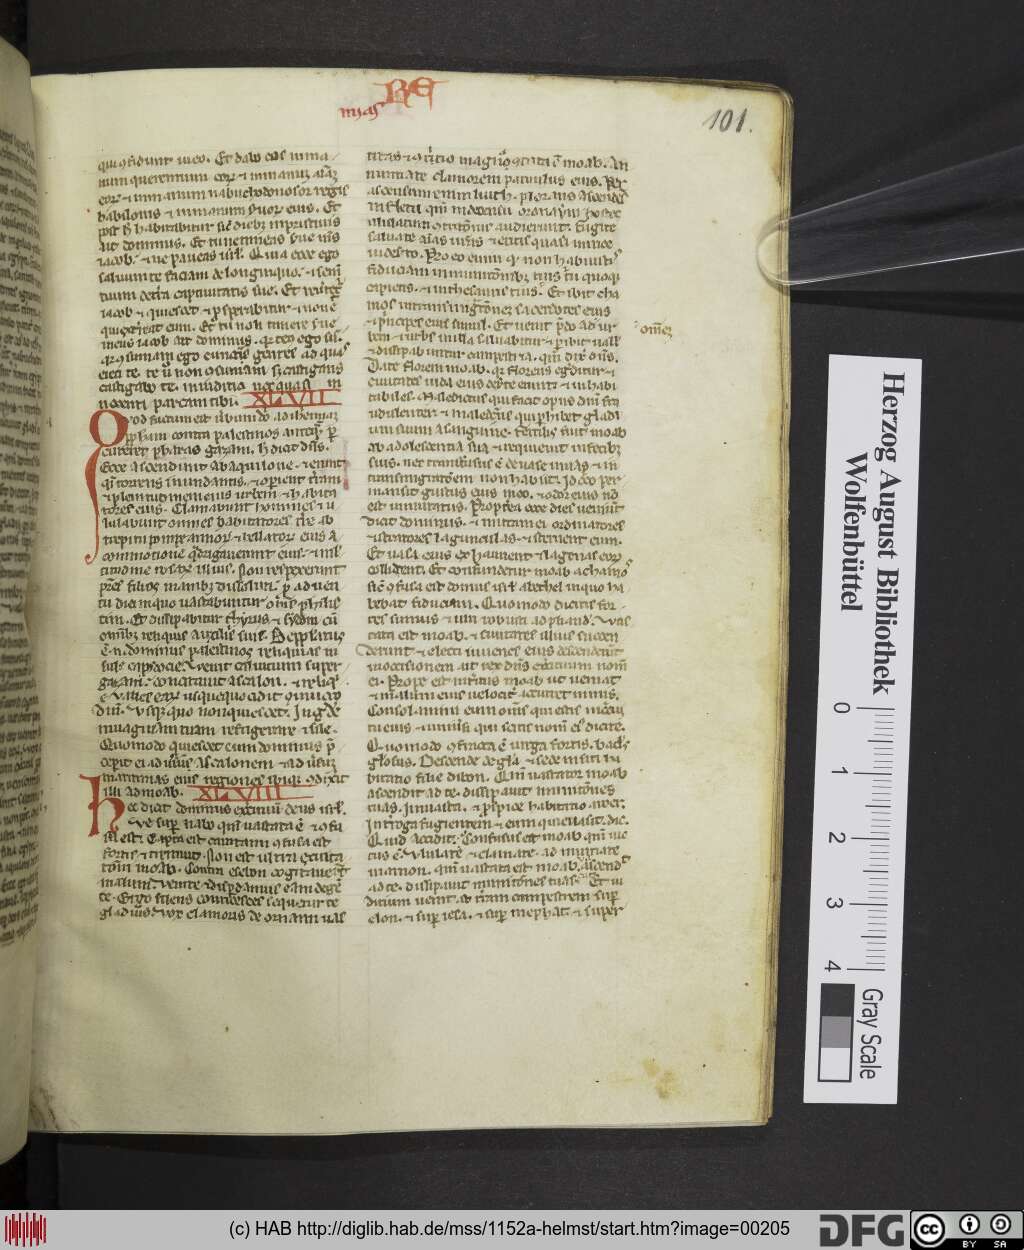 RE
mias
101.
qui confidunt in eo. Et dabo eos in ma
num querentium
eorum et in manum nabuchodonosor regis
babilonis et in manum servorum eius. Et
post hec habitabitur sicut diebus pristinis
ait dominus. Et tu ne timeas serve meus
iacob. et ne paveas israel. Quia ecce ego
salvum te faciam de longinquo. et semen
tuum de terra captivitatis sue. Et revertetur
iacob et quiescet et prosperabitur
qui exterreat eum. Et tu noli timere serve
meus iacob ait dominus. quia tecum ego sum.
quia consumam ego cunctas gentes ad quas
eieci te. te vero non consumam. sed castigabo
te in iudicio nec quasi in
nocenti parcam tibi. XLVII
Quod factum est verbum domini ad iheremiam
prophetam contra palestinos antequam per
cuteret pharao gazam. hec dicit dominus.
Ecce aque ascendunt ab aquilone. et erunt
quasi torrens inundans. et operient terram
et plenitudinem eius urbem et habita
tores eius. Clamabunt homines et u
lulabunt omnes habitatores terre ab
strepitu pompe armorum et bellatorum eius a
commotione quadrigarum eius. et mul
titudine rotarum illius. Non respexerunt
patres filios manibus dissolutis. pro adven
tu diei in quo vastabuntur omnes philis
tiim. Et dissipabitur thyrus et sydon cum
omnibus reliquis auxiliis suis. Depopulatus
est enim dominus palestinos reliquias in
sule cappadocie. Venit calvicium super
gazam. conticuit ascalon. et reliquie
vallis earum usquequo concideris o mucro
domini. Usquequo non quiesces. Ingredere
in vaginam tuam refrigerare et sile.
Quomodo quiescet cum dominus pre
ceperit ei adversus ascalonem et adversus
maritimas eius regiones ibique condixerit
illi ad moab. XLVIII
hec dicit dominus exercituum deus israel.
Ve super nabo quoniam vastata est et confu
sa est. capta est cariathaim confusa est
fortis et tremuit. Non est ultra exulta
tio in moab. Contra esebon cogitaverunt
malum. venite et disperdamus eam de gente.
Ergo silens conticesces sequetur te
gladius. vox clamoris de oronaim vas
titas et contritio magna. contrita est moab. An
nuntiate clamorem parvulis eius. Per
ascensum enim luith. plorans ascendet
in fletu quoniam in descensu oronaim hostes
ululatum contritionis audierunt. fugite
salvate animas vestras et eritis quasi mirice
in deserto. Pro eo enim quod habuisti
fiduciam in munitionibus tuis tu quoque
capieris. et in thesauris tuis. Et ibit cha
mos in transmigrationem sacerdotes eius
et principes eius simul. Et veniet predo ad ur
omnem
bem et urbs nulla salvabitur et peribunt valles
et dissipabuntur campestria. quoniam dixit dominus.
Date florem moab. quia florens egredietur et
civitates eius deserte erunt et inhabi
tabiles. Maledictus qui facit opus domini frau
dulenter et maledictus qui prohibet gladi
um suum a sanguine. fertilis fuit moab
ab adolescentia sua et requievit in fecibus
suis. nec transfusus est de vase in vas et in
transmigrationem non habiit. Idcirco per
mansit gustus eius in eo. et odor eius non
est immutatus. Propterea ecce dies veniunt
dicit dominus. et mittam ei ordinatores
et stratores laguncularum et sternent eum.
Et vasa eius exhaurient et lagenas eorum
collident. Et confundetur moab a chamos
sicut confusa est domus israel a bethel in qua ha
bebat fiduciam. Quomodo dicitis for
tes sumus et viri robusti ad preliandum. Vas
tata est moab. et civitates illius succen
derunt et electi iuvenes eius descenderunt
in occisionem. ait rex dominus exercituum nomen
ei. Prope est interitus moab ut veniat
et malum eius velociter accurret nimis.
Consolamini eum omnes qui estis in circui
tu eius et universi qui scitis nomen eius dicite.
Quomodo confracta est virga fortis. baculus
gloriosus. Descende de gloria et sede in siti ha
bitatio filie dibon. Quoniam vastator moab
ascendit ad te. dissipavit munitiones
tuas. In via sta. et prospice habitatio aroer.
Interroga fugientem et eum qui evasit. dic.
Quid accidit. Confusus est moab quoniam vic
tus est. Ululate et clamate. ad nuntiate
in arnon. quoniam vastata est moab. ascendit
ad te. dissipavit munitiones tuas. Et iu
dicium venit ad terram campestrem super
elon. et super iesa. et super mephaat. et super
Herzog August Bibliothek
Wolfenbüttel
0 1 2 3 4
Gray Scale
(c) HAB http://diglib.hab.de/mss/1152a-helmst/start.htm?image=00205
DFG
cc BY SA